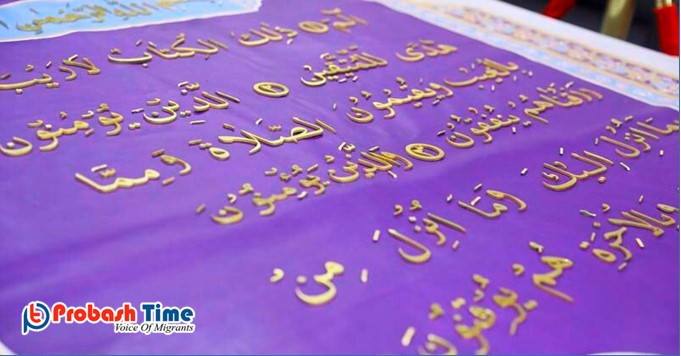 اللَّهِ الرَّحْمَٰنِ
الٓمٓ ۝ ذَٰلِكَ الْكِتَابُ لَا رَيْبَ
هُدًى لِّلْمُتَّقِينَ ۝ الَّذِينَ يُؤْمِنُونَ
بِالْغَيْبِ وَيُقِيمُونَ الصَّلَاةَ وَمِمَّا
رَزَقْنَاهُمْ يُنفِقُونَ ۝ وَالَّذِينَ يُؤْمِنُونَ
بِمَا أُنزِلَ إِلَيْكَ وَمَا أُنزِلَ مِن
وَبِالْآخِرَةِ هُمْ يُوقِنُونَ
Probash Time
Voice Of Migrants